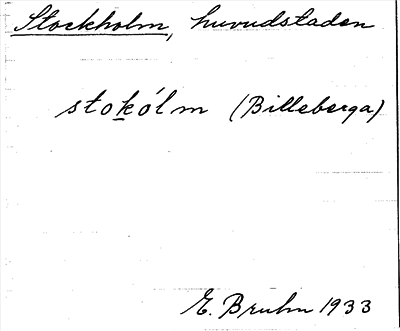 Stockholm, huvudstaden
stokólm (Billeberga)
E. Bruhn 1933